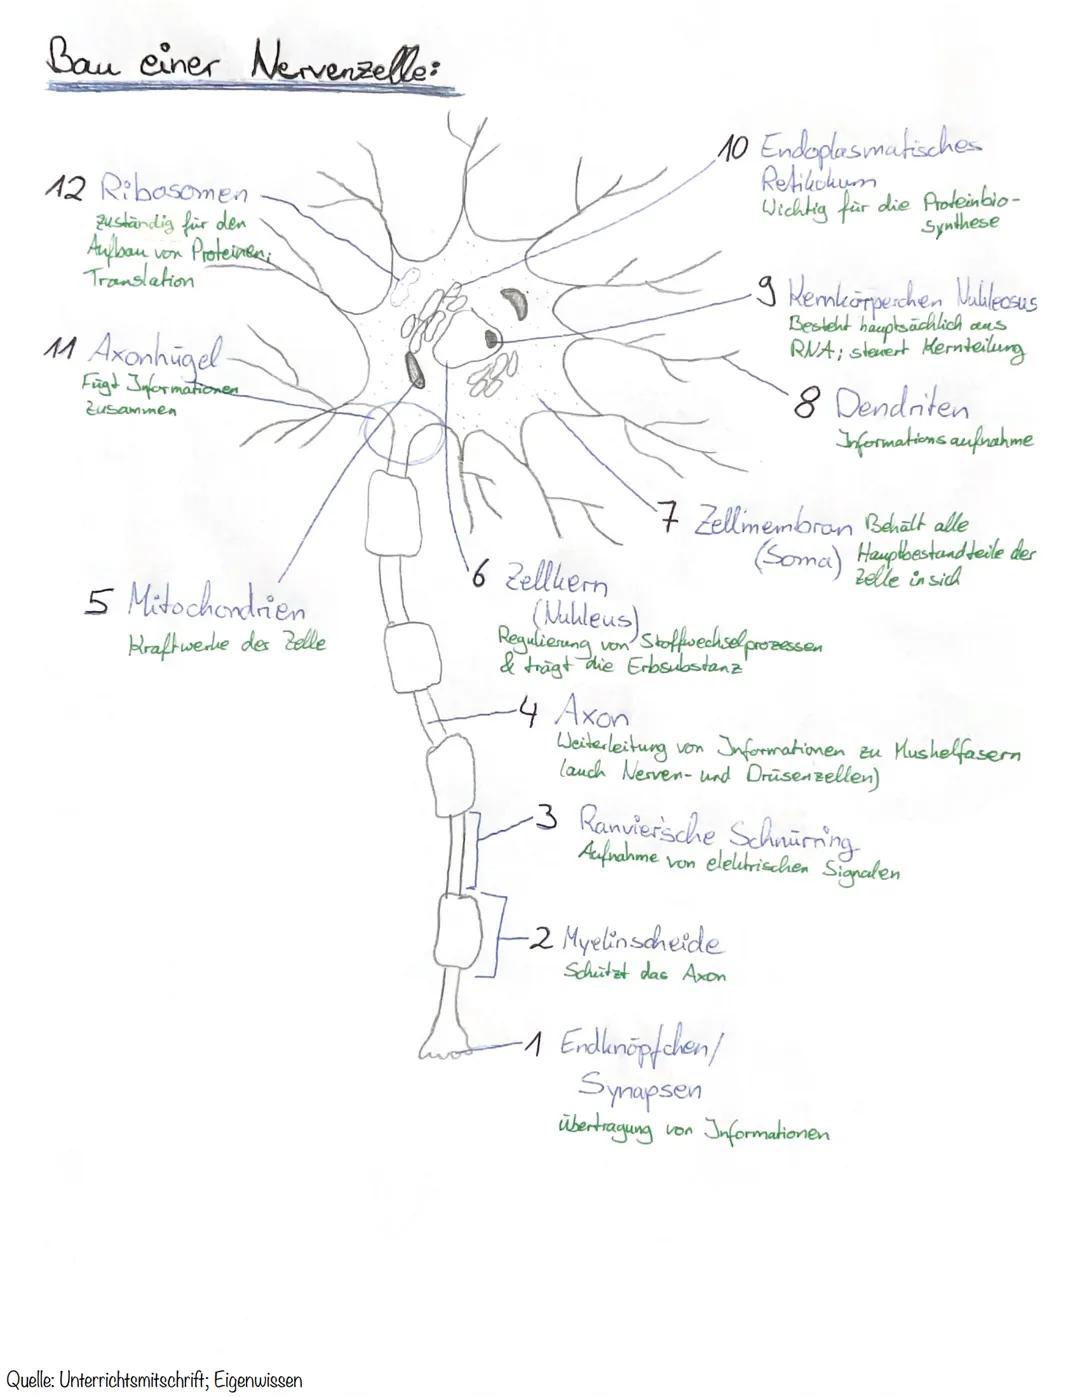 Bau einer Nervenzelle:
10 Endoplasmatisches
Retikulum
Wichtig für die Proteinbio-
synthese
12 Ribosomen
zuständig für den
Aufbau von Proteinen;
Translation
9 Kernkörperchen Nukleosus
Besteht hauptsächlich aus
RNA; steuert Kernteilung
11 Axonhügel
Fügt Informationen
zusammen
8 Dendriten
Informationsaufnahme
7 Zellmembran
(Soma)
Behält alle
Hauptbestandteile der
Zelle in sich
6 Zellkern
(Nukleus)
Regulierung von Stoffwechselprozessen
& trägt die Erbsubstanz
5 Mitochondrien
Kraftwerke der Zelle
4 Axon
Weiterleitung von Informationen zu Muskelfasern
(auch Nerven- und Drüsenzellen)
3 Ranvier'sche Schnürring
Aufnahme von elektrischen Signalen
2 Myelinscheide
Schützt das Axon
1 Endknöpfchen/
Synapsen
Übertragung von Informationen
Quelle: Unterrichtsmitschrift; Eigenwissen